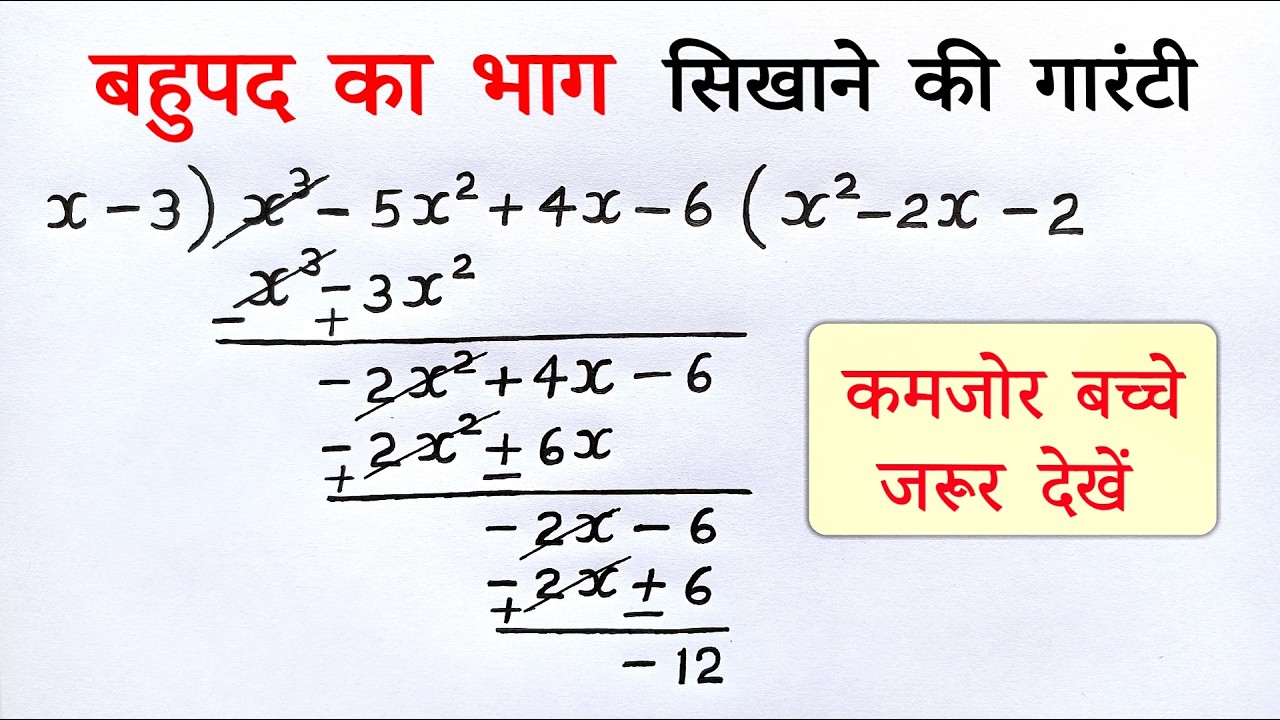 बहुपद का भाग सिखाने की गारंटी
x - 3) x³ - 5x² + 4x - 6 (x² - 2x - 2
x³ - 3x²
- +
- 2x² + 4x - 6
- 2x² + 6x
+ -
- 2x - 6
- 2x + 6
+ -
- 12
कमजोर बच्चे
जरूर देखें